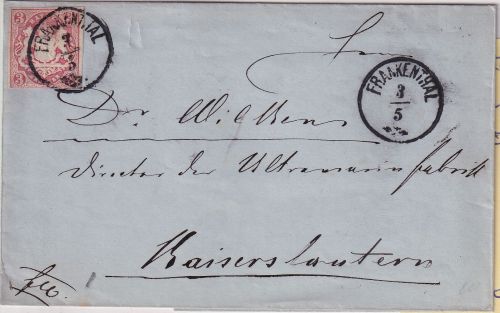 3
3
FRANKENTHAL
3
5
FRANKENTHAL
3
5
Dr. Wilkens
Director der Ultramarinfabrik
Kaiserslautern